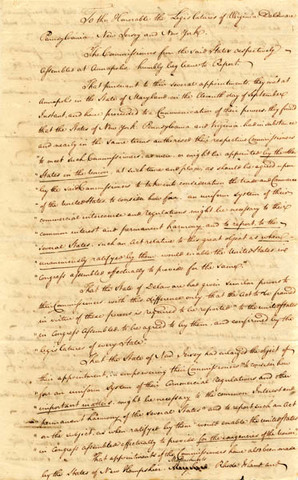 To the Honorable the Legislatures of Virginia, Delaware
Pennsylvania New Jersey and New York.
The Commissioners from the said States respectively
assembled at Annapolis humbly beg leave to Report.
That pursuant to their several appointments, they met at
Annapolis in the State of Maryland on the eleventh day of September
Instant, and have proceeded to a Communication of their powers, they found
that the States of New York Pennsylvania and Virginia had in substance
and nearly in the same terms authorised their respective Commissioners
to meet such Commissioners as were or might be appointed by the other
States in the Union, at such time and place, as should be agreed upon
by the said Commissioners to take into consideration the trade and Commerce
of the United States to consider how far an uniform System in their
commercial intercourse and regulations might be necessary to their
common interest and permanent harmony, and to report to the
several States, such an Act relative to this great object as when
unanimously ratifyed by them would enable the United States in
Congress assembled effectually to provide for the same.
That the State of Delaware has given similar powers to
their Commissioners with this difference only that the Act to be framed
in virtue of these powers is required to be reported "to the united States
in Congress assembled to be agreed to by them, and confirmed by the
legislatures of every State.
That the State of New Jersey had enlarged the object of
their appointment, in empowering their Commissioners to consider how
far an uniform System in their Commercial Regulations and other
important matters might be necessary to the common Interest and
permanent harmony of the several States and to report such an Act
on the subject, as when ratifyed by them would enable the united States
in Congress assembled effectually to provide for the exigencies of the Union
That appointments of Commissioners have also been made
by the States of New Hampshire Rhode Island and